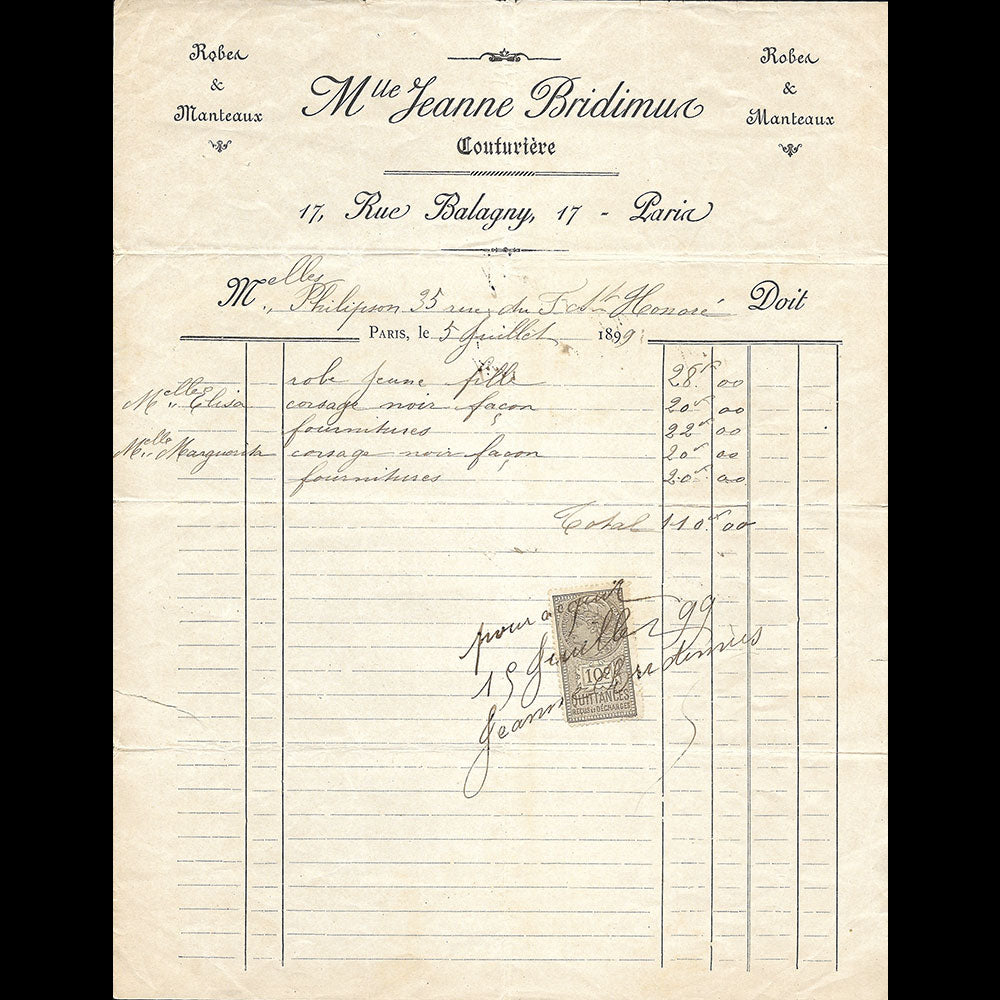 Robes
&
Manteaux
Mlle Jeanne Bridimus
Couturière
17, Rue Balagny, 17 - Paris
Robes
&
Manteaux
Melles Philipson 35 rue du F. St Honoré Doit
Paris, le 5 Juillet 1899
robe jeune fille 28f 00
Melles Elisa corsage noir façon 20f 00
fournitures 22f 00
Melle Marguerite corsage noir façon 20f 00
fournitures 20f 00
Total 110f 00
pour acquit
15 Juillet 99
Jeanne Bridimus
10c
QUITTANCES
REÇUS & DÉCHARGES